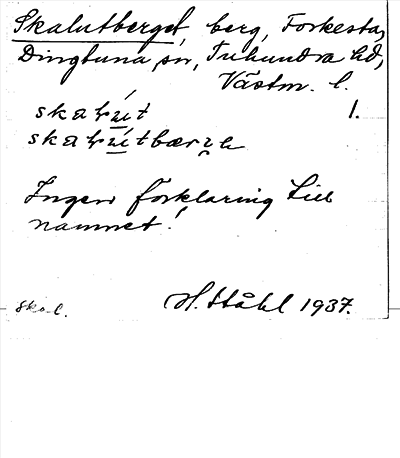 Skalutberget, berg, Forkesta,
Dingtuna sn, Tuhundra hd,
Västm. l.
1.
Ingen förklaring till
namnet!
Skal.
H. Ståhl 1937.